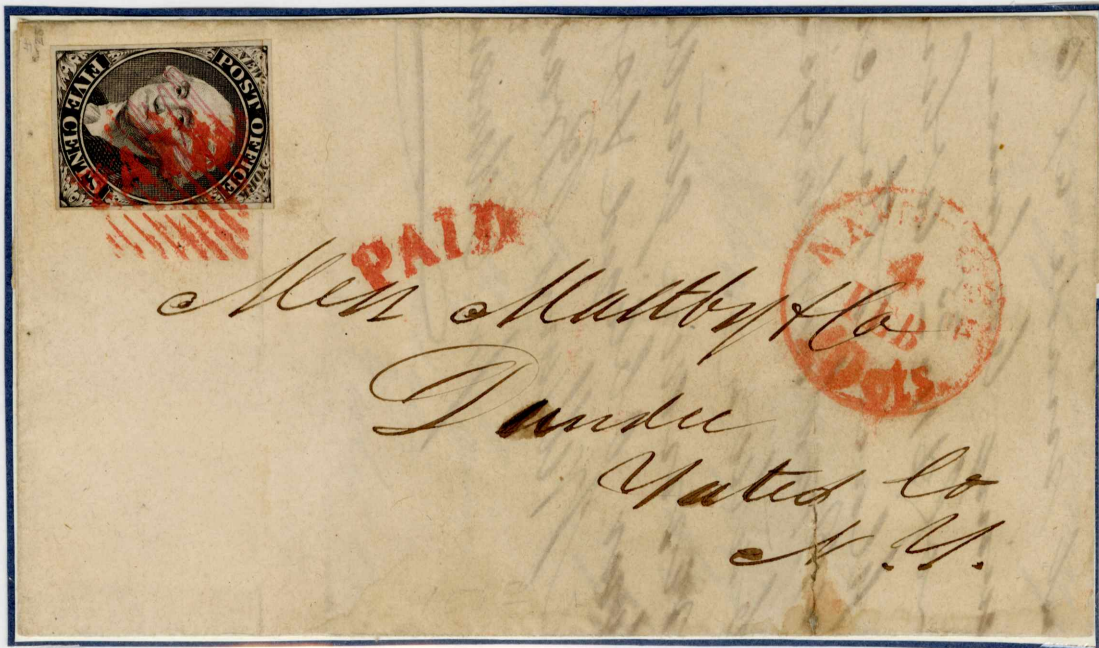 POST OFFICE
FIVE CENTS
PAID
PAID
FEB
cts
Mess Maltby & Co
Dundee
Yates Co
N.Y.